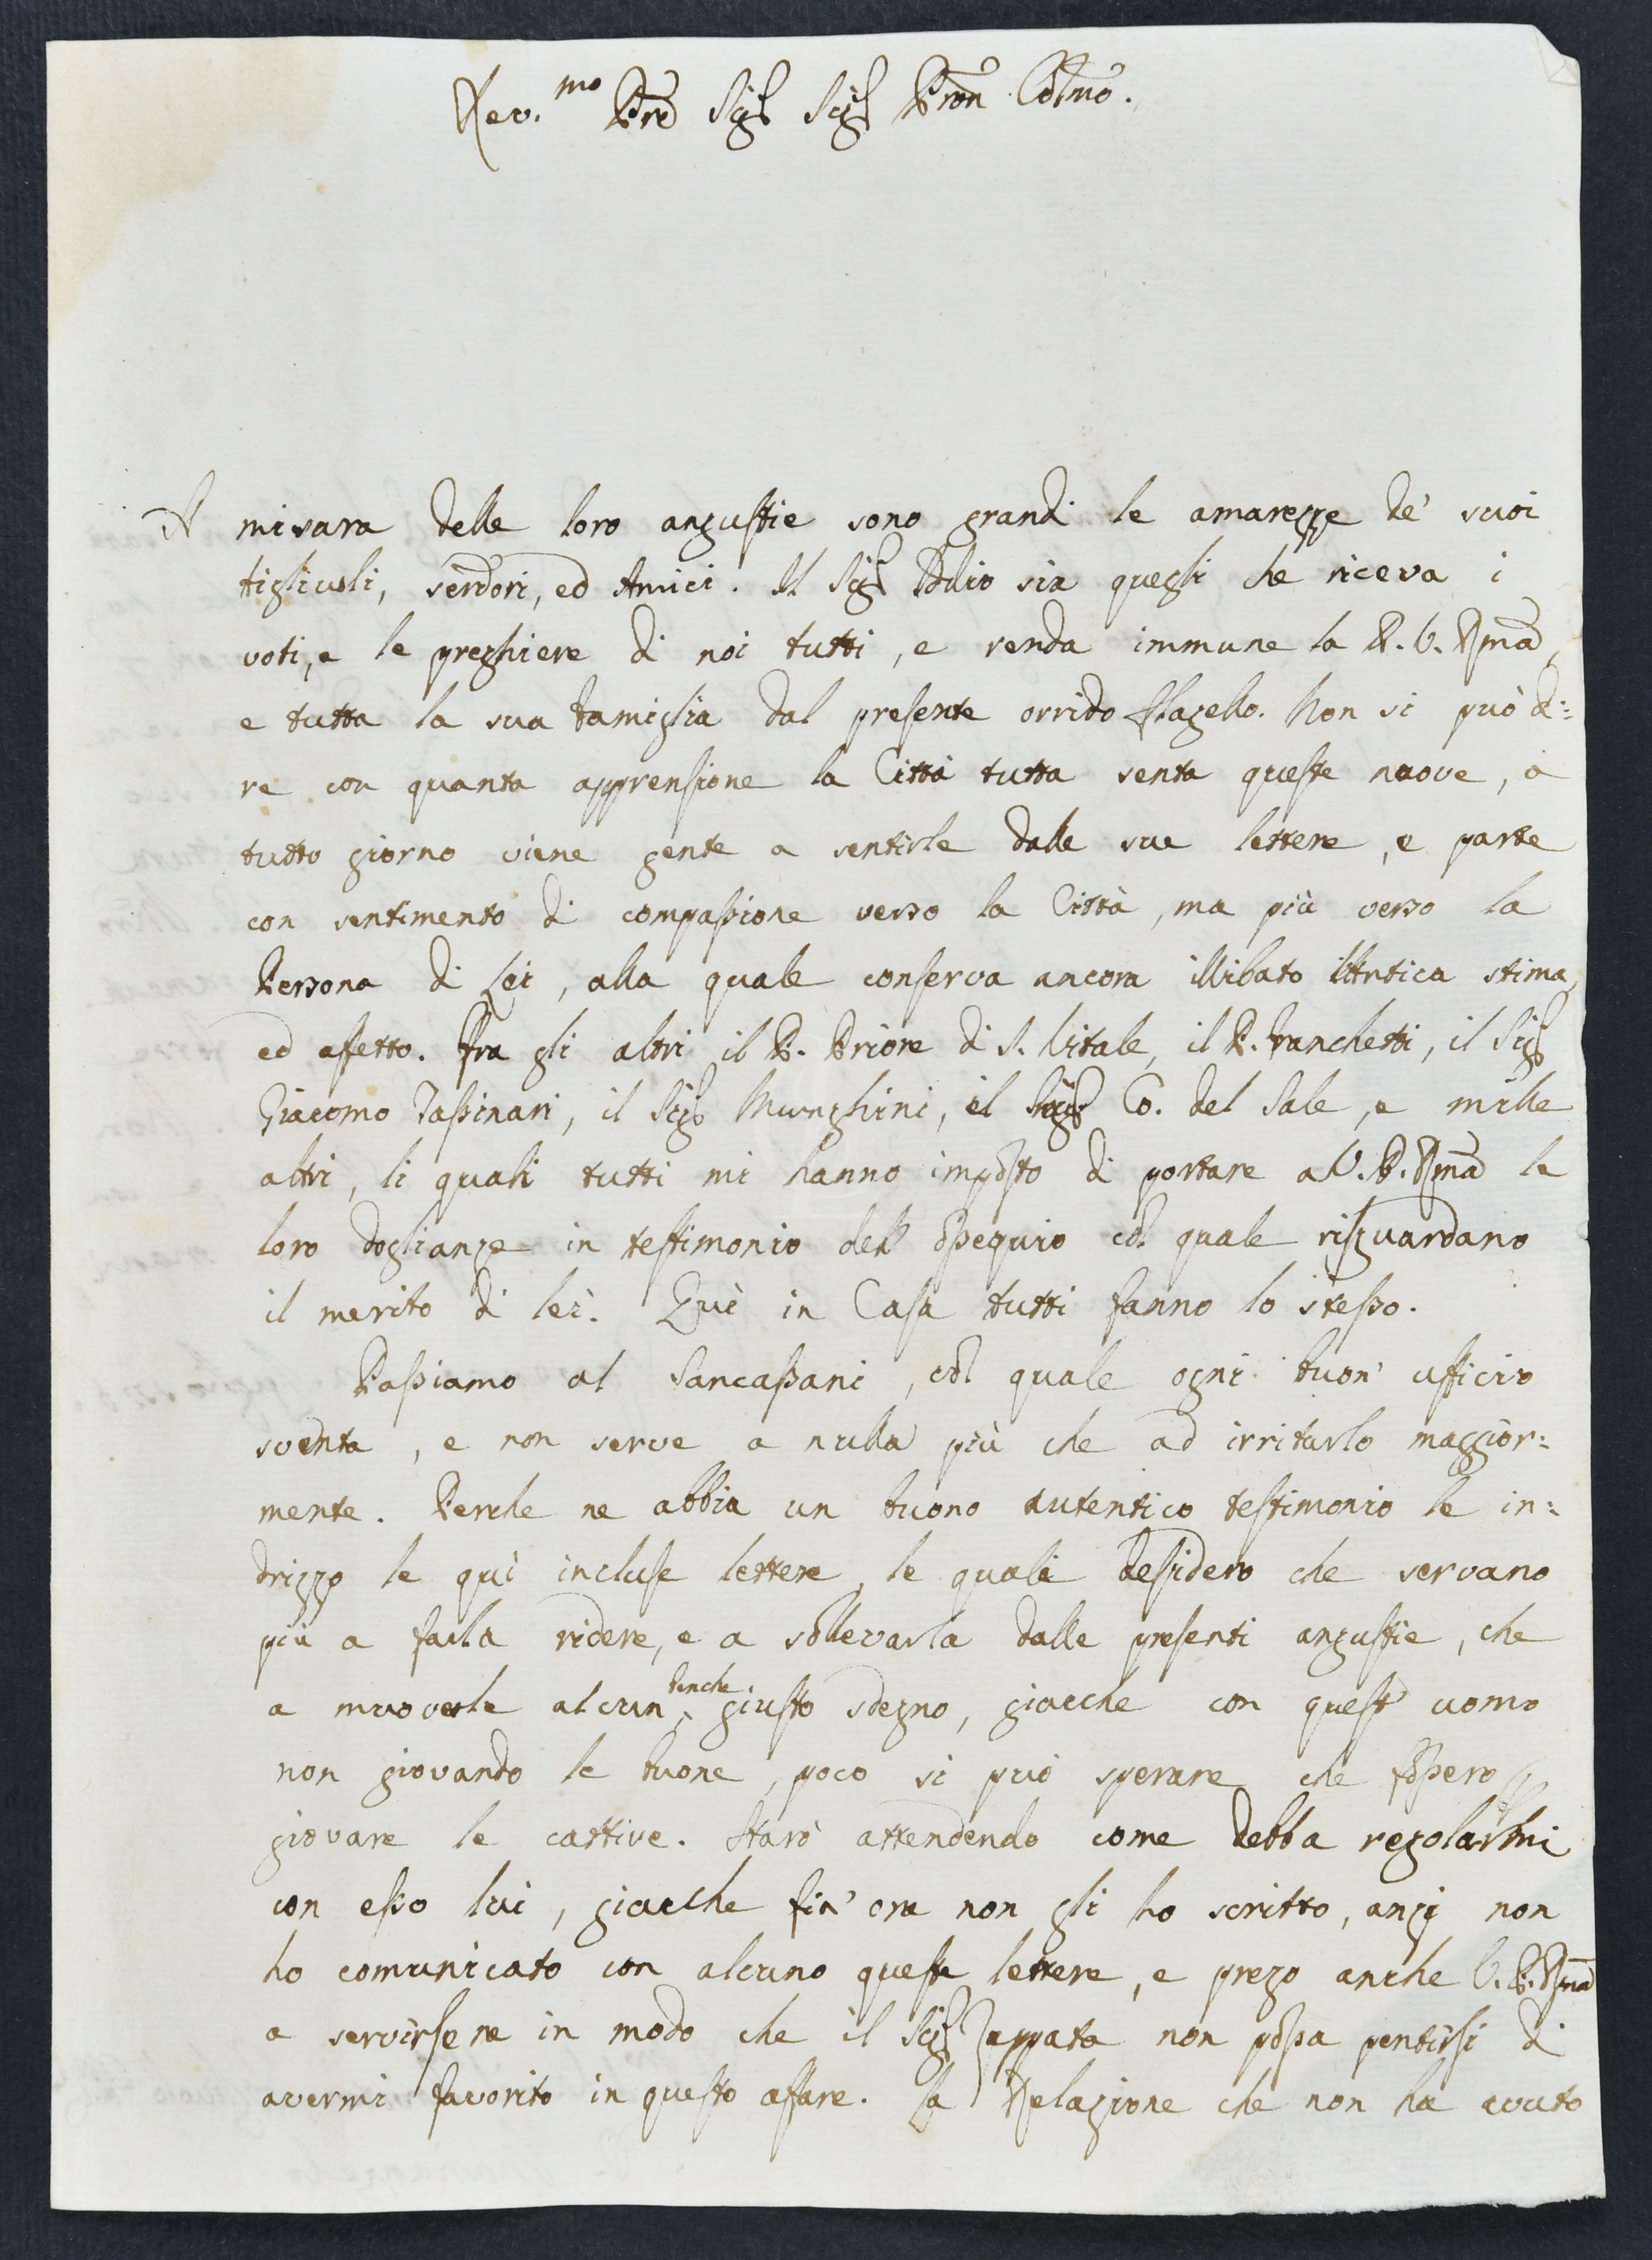 Rev.mo Pre Sig Sig Pron Colmo.
A misura delle loro angustie sono grandi le amarezze de' suoi
figliuoli, servdori, ed Amici. Il Sig Iddio sia quegli che riceva i
voti, e le preghiere di noi tutti, e renda immune la P. V. Rma,
e tutta la sua famiglia dal presente orrido flagello. Non si può di=
re con quanta apprensione la Città tutta senta queste nuove, a
tutto giorno viene gente a sentirle dalle sue lettere, e parte
con sentimento di compassione verso la Città, ma più verso la
Persona di Lei, alla quale conserva ancora illibato l'Antica stima,
ed affetto. Fra gli altri il P. Priore di S. Vitale, il P. Franchetti, il Sig
Giacomo Tassinari, il Sig Munghini, il Sig Co. del Sale, e mille
altri, li quali tutti mi hanno imposto di portare a V. P. Rma le
loro doglianze in testimonio dell' ossequio col quale risguardano
il merito di lei. Quì in Casa tutti fanno lo stesso.
Passiamo al Sancassani, col quale ogni buon' ufficio
sventa, e non serve a nulla più che ad irritarlo maggior=
mente. Perche ne abbia un buono autentico testimonio le in=
drizzo le quì incluse lettere, le quali desidero che servano
più a farla ridere, e a sollevarla dalle presenti angustie, che
a muoverle alcun benche giusto sdegno, giacche con quest' uomo
non giovando le buone, poco si può sperare che possero
giovare le cattive. Starò attendendo come debba regolarmi
con esso lui, giacche fin' ora non gli ho scritto, anzi non
ho comunicato con alcuno queste lettere, e prego anche V. P. Rma
a servirsene in modo che il Sig Zappata non possa pentirsi di
avermi favorito in questo affare. La Relazione che non ha avuto